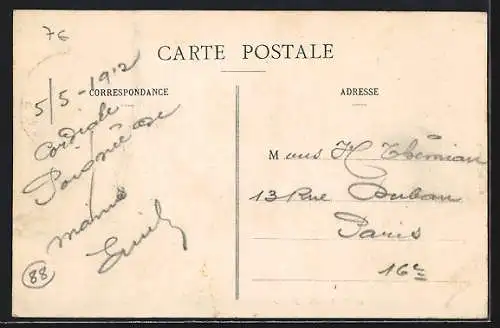 76
CARTE POSTALE
CORRESPONDANCE
5/5-1912
Cordiale
Poignée de
mains
Emile
88
ADRESSE
Mons H. Thémian
13 Rue Duban
Paris
16e